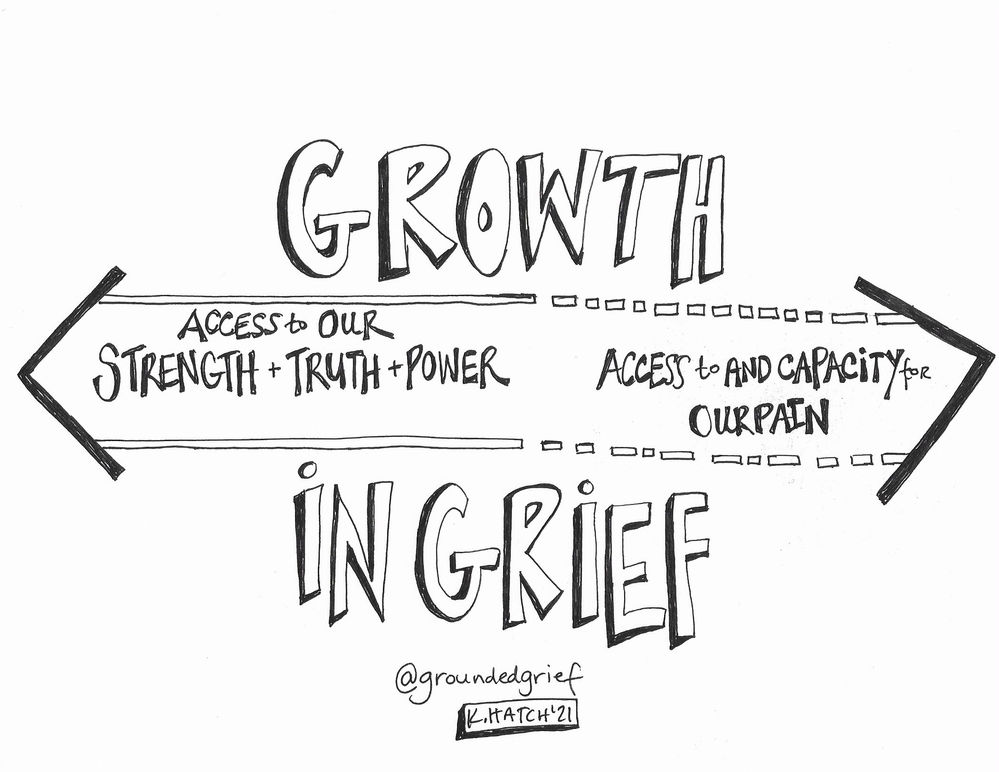 GROWTH
ACCESS to OUR
STRENGTH + TRUTH + POWER
ACCESS to AND CAPACITY for
OUR PAIN
iN GRiEF
@groundedgrief
K.HATCH'21